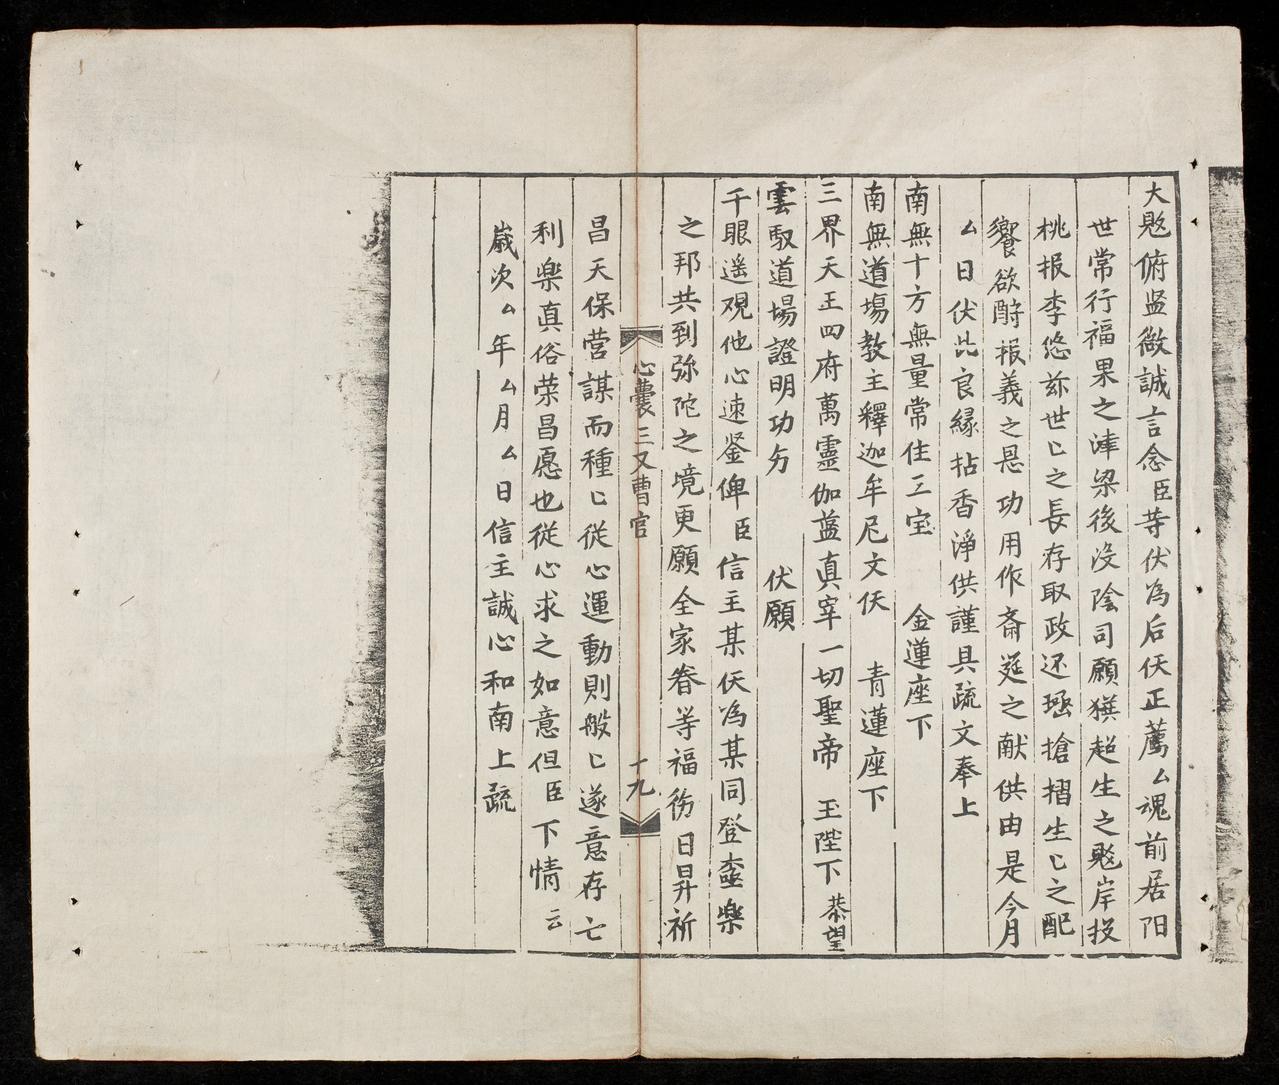 大慇俯监微誠言念臣等伏為后伕正薦厶魂前居阳
世常行福果之津梁後沒陰司願獲超生之慇岸投
桃报李悠㢤世匕之長存取政还搶摺生匕之配
饗欲酧报義之恩功用作斎筵之献供由是今月
厶日伏此良縁拈香淨供謹具疏文奉上
南無十方無量常住三宝 金蓮座下
南無道塲教主釋迦牟尼文仸 青蓮座下
三界天王四府萬靈伽蓝真宰一切聖帝 王陛下恭望
雲馭道塲證明功力 伏願
千眼遥观他心速鉴俾臣信主某伏為某同登楽
之邦共到弥陀之境更願全家眷等福日昇祈
心囊三又曹官 十九
昌天保营謀而種匕従心運動則般匕遂意存亡
利楽真俗荣昌愿也従心求之如意但臣下情云
歳次厶年厶月厶日信主誠心和南上疏